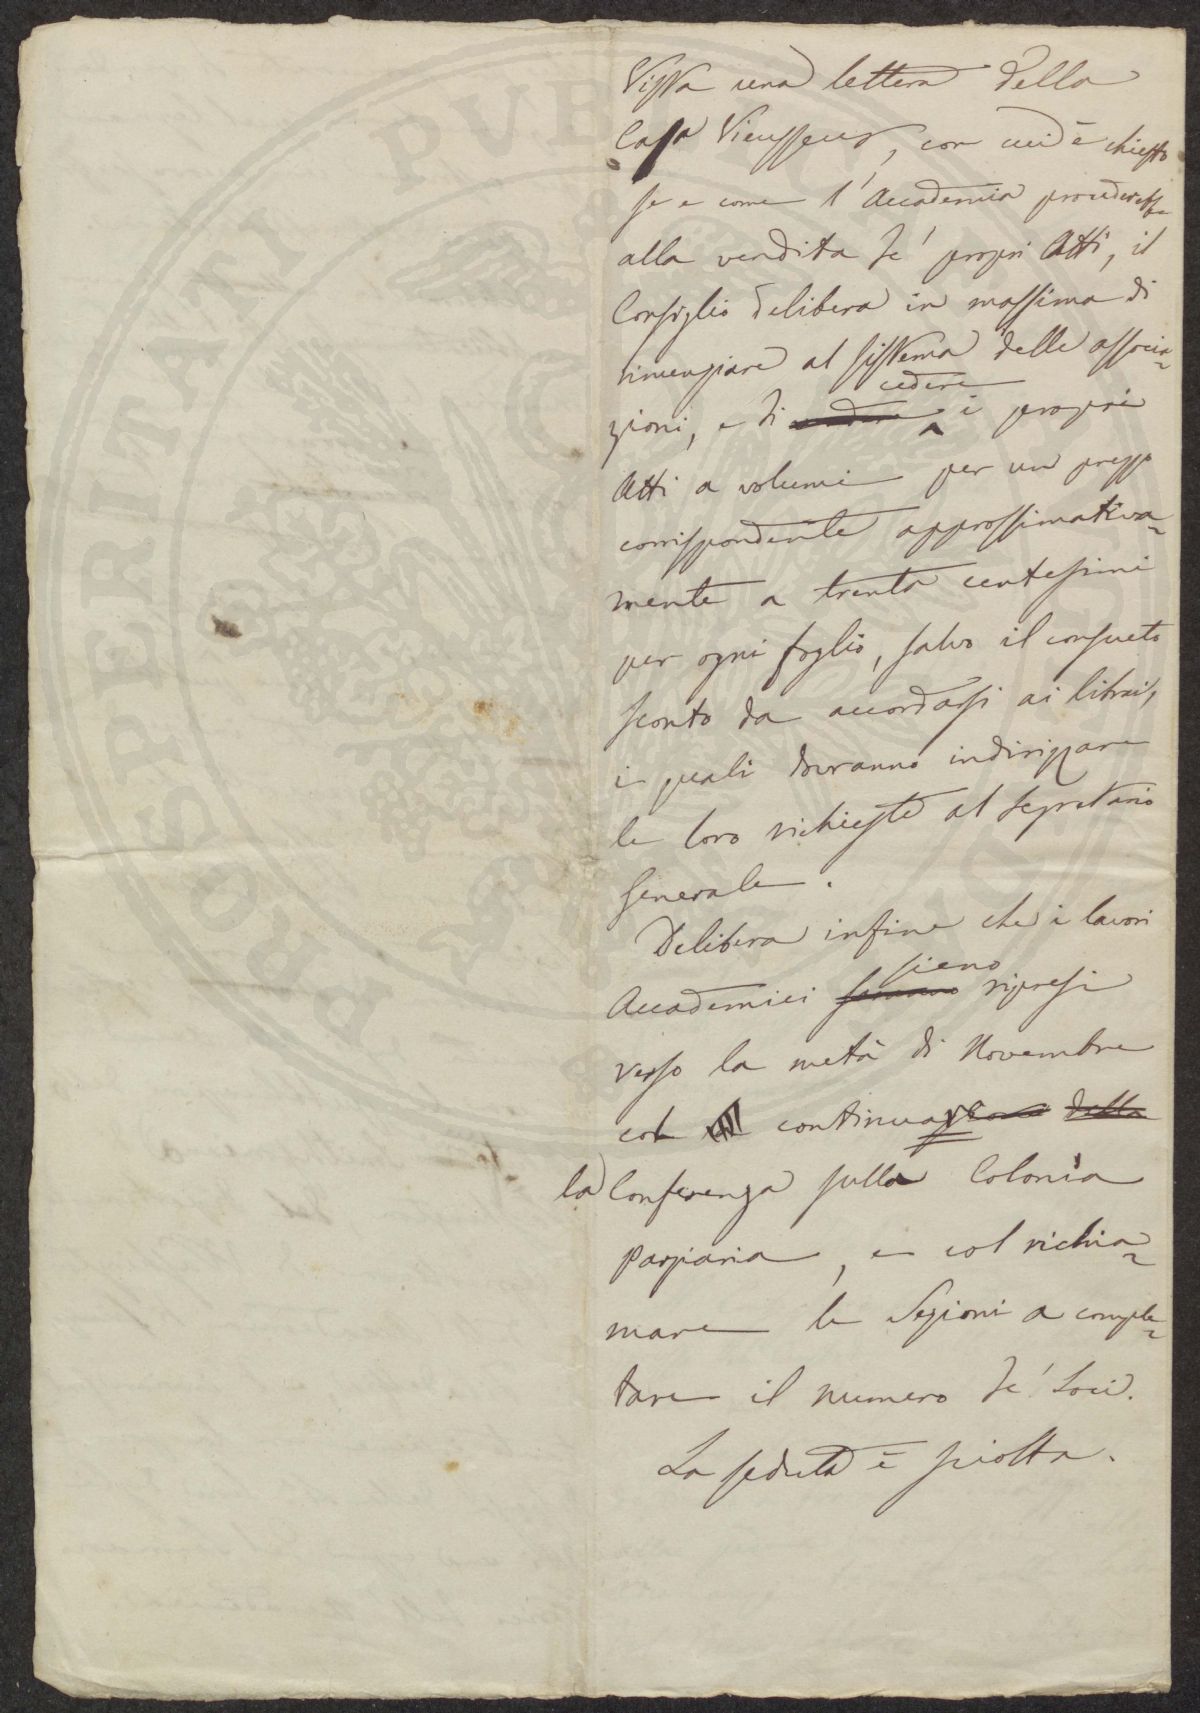 Vista una lettera della
Casa Vieusseux, con cui è chiesto
se e come l'Accademia procederebbe
alla vendita de' propri Atti, il
Consiglio delibera in massima di
rinunziare al sistema delle associa-
zioni, e di vendere cedere i propri
Atti a volumi per un prezzo
corrispondente approssimativa-
mente a trenta centesimi
per ogni foglio, salvo il consueto
sconto da accordarsi ai librai,
i quali dovranno indirizzare
le loro richieste al Segretario
Generale.
Delibera infine che i lavori
Accademici saranno sieno ripresi
verso la metà di Novembre
col continuazione della
la Conferenza sulla Colonia
Parziaria, e col richia-
mare le Sezioni a comple-
tare il numero de' Soci.
La seduta è sciolta.
PROSPERITATI PVBLICAE